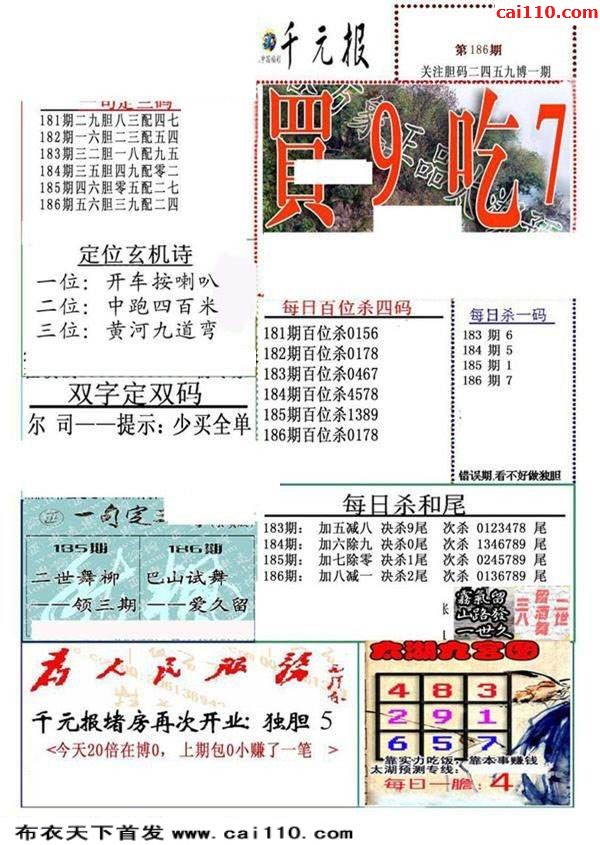 cai110.com
千元报
第186期
关注胆码二四五九博一期
一句定三码
181期二九胆八三配四七
182期一六胆二三配五四
183期三二胆一八配九五
184期三五胆四九配零二
185期四六胆零五配二七
186期五六胆三九配二四
買 9 吃 7
定位玄机诗
一位：开车按喇叭
二位：中跑四百米
三位：黄河九道弯
每日百位杀四码
181期百位杀0156
182期百位杀0178
183期百位杀0467
184期百位杀4578
185期百位杀1389
186期百位杀0178
每日杀一码
183 期 6
184 期 5
185 期 1
186 期 7
错误期,看不好做独胆
双字定双码
尔 司——提示：少买全单
每日杀和尾
183期： 加五减八 决杀9尾 次杀 0123478 尾
184期： 加六除九 决杀0尾 次杀 1346789 尾
185期： 加七除零 决杀1尾 次杀 0245789 尾
186期： 加八减一 决杀2尾 次杀 0136789 尾
一句定三
185期
二世舞柳
——领三期
186期
巴山试舞
——爱久留
为人民服务
千元报堵房再次开业：独胆 5
<今天20倍在博0，上期包0小赚了一笔 >
太湖九宫图
4 8 3
2 9 1
6 5 7
靠实力吃饭，靠本事赚钱
太湖预测专线:
每日一胆：4
布衣天下首发 www.cai110.com